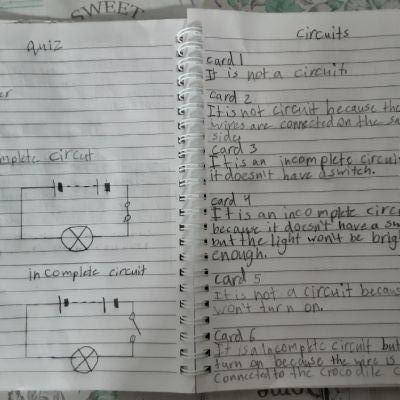 SWEET
Quiz
er
mplete circuit
incomplete circuit
Circuits
Card 1
It is not a circuit.
Card 2
It is not circuit because the
wires are connected on the sa
side
Card 3
It is an incomplete circui
it doesn't have a switch.
Card 4
It is an incomplete circ
because it doesn't have a sw
but the light won't be brig
enough.
Card 5
It is not a circuit becaus
won't turn on.
Card 6
It is a incomplete circuit but
turn on because the wire is
connected to the crocodile c